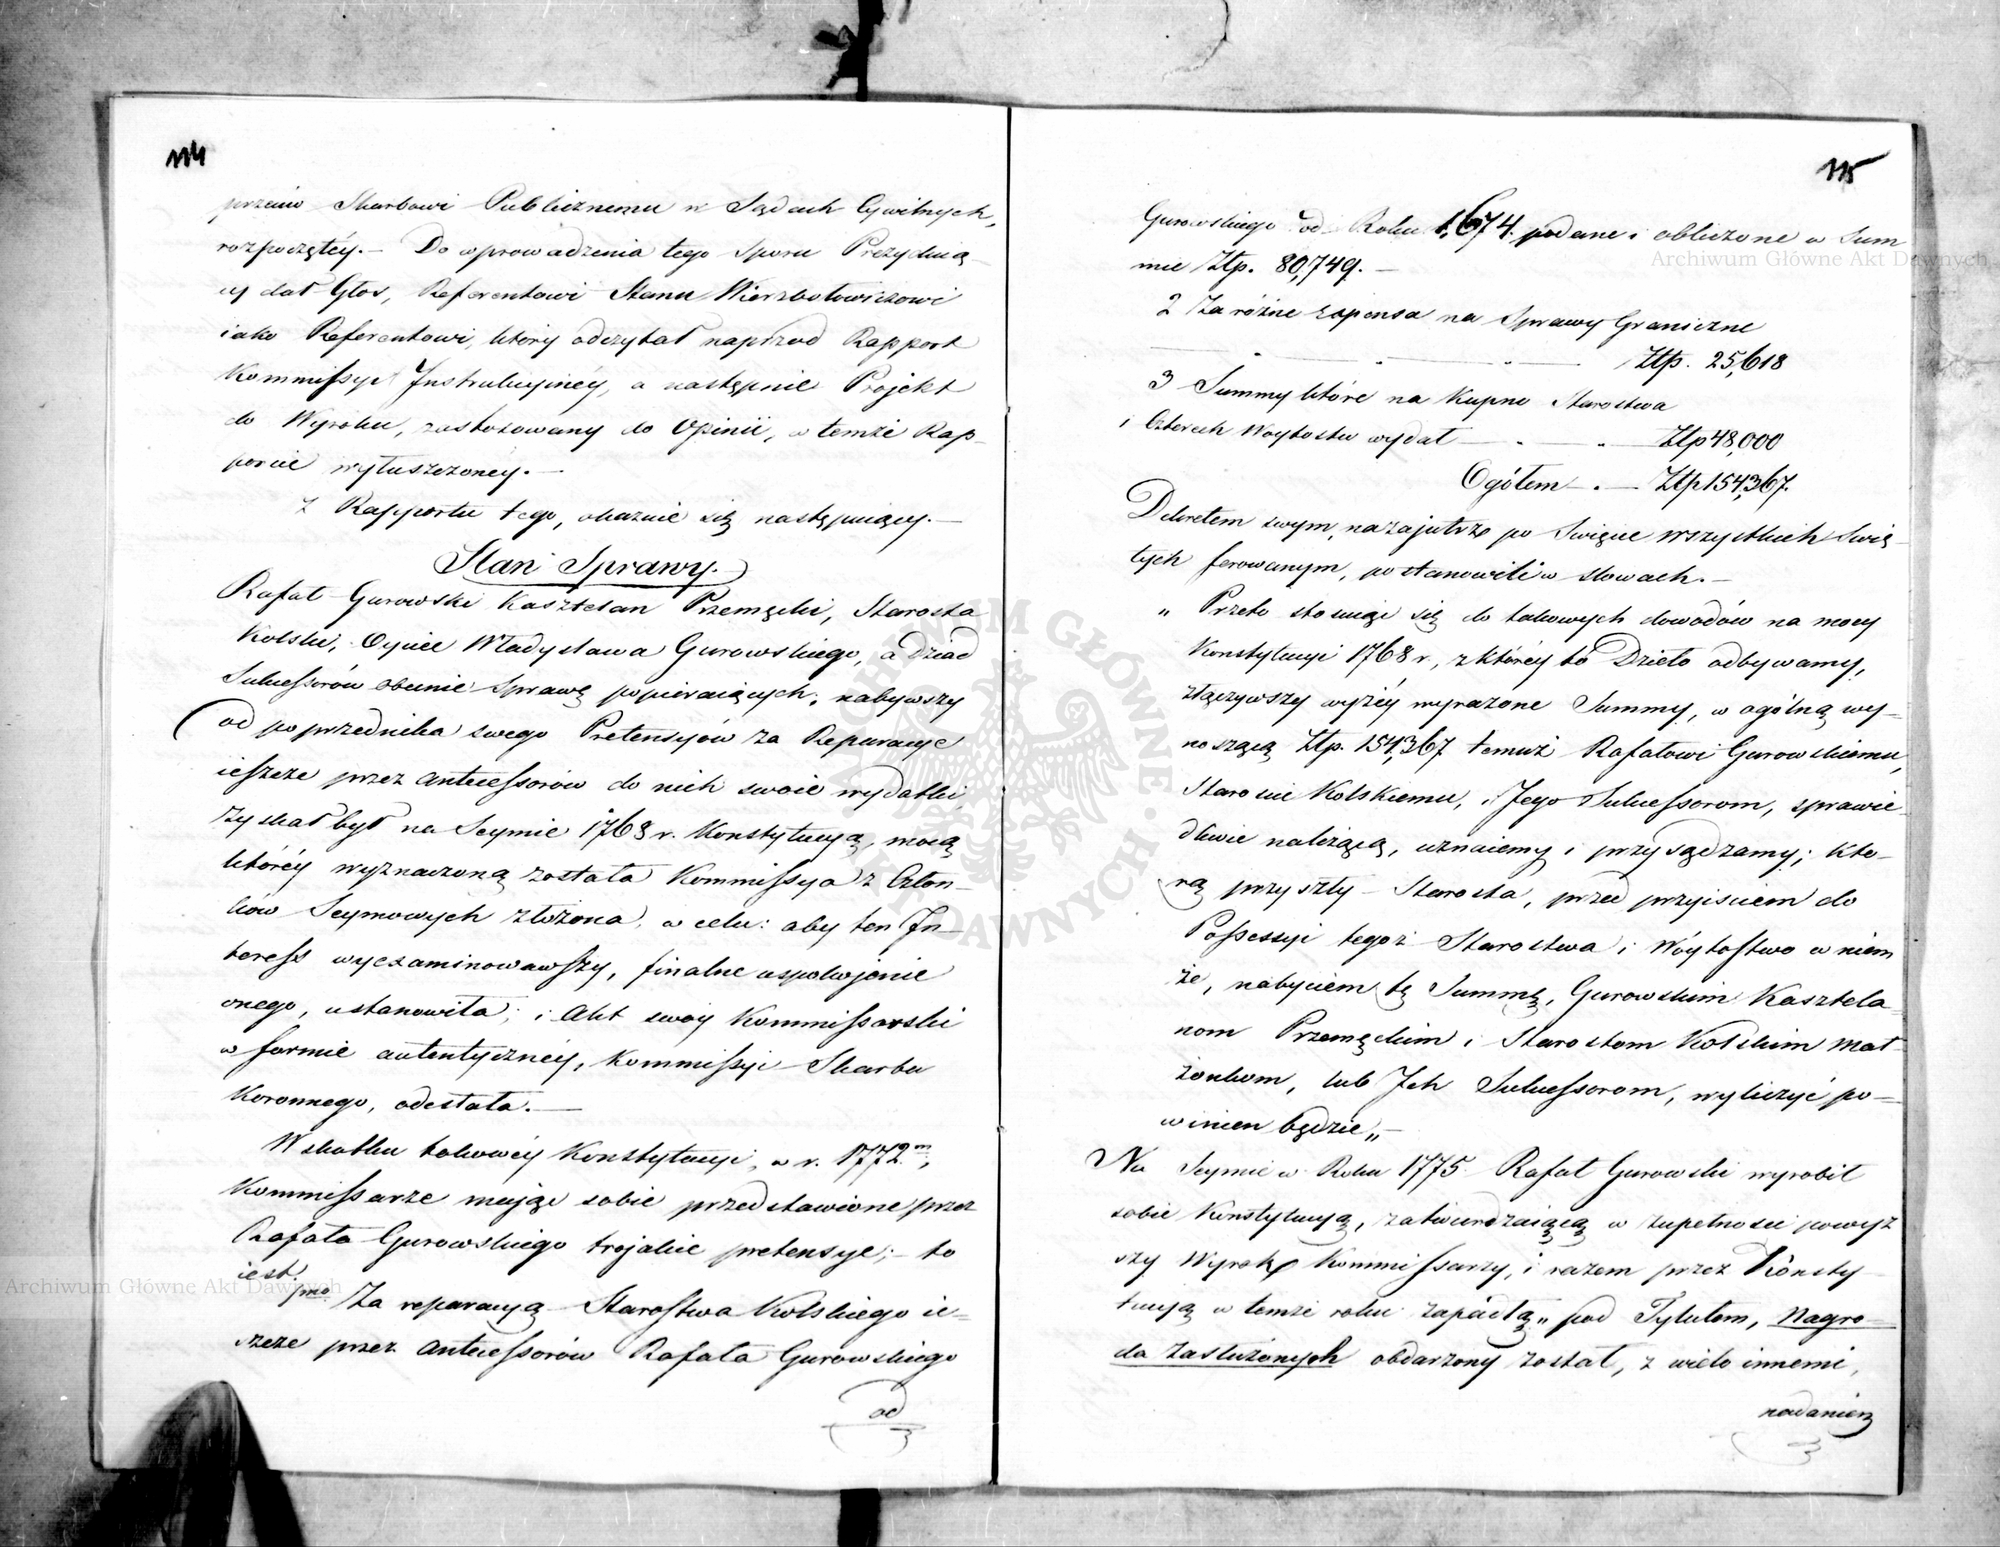 114
przeciw Skarbowi Publicznemu w Sądach Cywilnych,
rozpoczętéy. — Do wprowadzenia tego Sporu Prezyduią-
cy dał Głos, Referentowi Stanu Wierzbołowiczowi
iako Referentowi, który odczytał naprzod Rapport
Kommissyi Instrukcyinéy, a następnie Projekt
do Wyroku, zastosowany do Opinii, w temże Rap-
porcie wyłuszczonéy. —
Z Rapportu tego, okazuie się następuiący. —
Stan Sprawy.
Rafał Gurowski Kasztelan Przemęcki, Starosta
Kolski, Oyciec Władysława Gurowskiego, a dziad
Sukcessorów obecnie Sprawę popieraiących, nabywszy
od poprzednika swego Pretensyów za Reparacye
ieszcze przez antecessorów do nich swoie wydatki,
zyskał był na Seymie 1768 r. Konstytucyą, mocą
któréy wyznaczoną została Kommissya z Człon-
ków Seymowych złożona, w celu: aby ten In-
teress wyexaminowawszy, finalne uspokojenie
onego, ustanowiła; i Akt swóy Kommissarski
w formie autentycznéy, Kommissyi Skarbu
Koronnego, odesłała. —
W skutku takowéy Konstytucyi, w r. 1772m,
Kommissarze mając sobie przedstawione przez
Rafała Gurowskiego trojakie pretensye; — to
iest.
pmo Za reparacyą Starostwa Kolskiego ie-
szcze przez antecessorów Rafała Gurowskiego
od
115
Gurowskiego od Roku 1,674. podane i obliczone w Sum
mie Złp. 80,749. —
2 Za różne expensa na Sprawy Graniczne
— . — . — . — Złp. 25,618
3 Summy które na Kupno Starostwa
i Czterech Woytostw wydał — . — . — Złp 48,000
Ogółem — . — Złp 154,367.
Dekretem swym, nazajutrz po Swięcie wszystkich Swię-
tych ferowanym, postanowili w słowach. —
„ Przeto stosuiąc się do takowych dowodów na mocy
Konstytucyi 1768 r, z któréy to Dzieło odbywamy,
złączywszy wyżéy wyrażone Summy, w ogólną wy-
noszącą Złp. 154,367 temuż Rafałowi Gurowskiemu,
Staroscie Kolskiemu, i Jego Sukcessorom, sprawie-
dliwie należącą, uznaiemy i przysądzamy; Któ-
rą przyszły Starosta, przed przyisciem do
Possessyi tegoż Starostwa i Wóytostwo w niem
że, nabyciem tę Summę, Gurowskim Kasztela-
nom Przemęckim i Starostom Kolskim Mał-
żonkom, lub Ich Sukcessorom, wyliczyć po-
winien będzie„ —
Na Seymie w Roku 1775 Rafał Gurowski wyrobił
sobie Konstytucyą, zatwierdzaiącą w zupełności powyż
szy Wyrok Kommissarzy, i razem przez Konsty-
tucyą w temże roku zapadłą„ pod Tytułem, Nagro-
da Zasłużonych obdarzony został, z wielo innemi,
nadaniem
Archiwum Główne Akt Dawnych
Archiwum Główne Akt Dawnych
ARCHIWUM GŁÓWNE AKT DAWNYCH